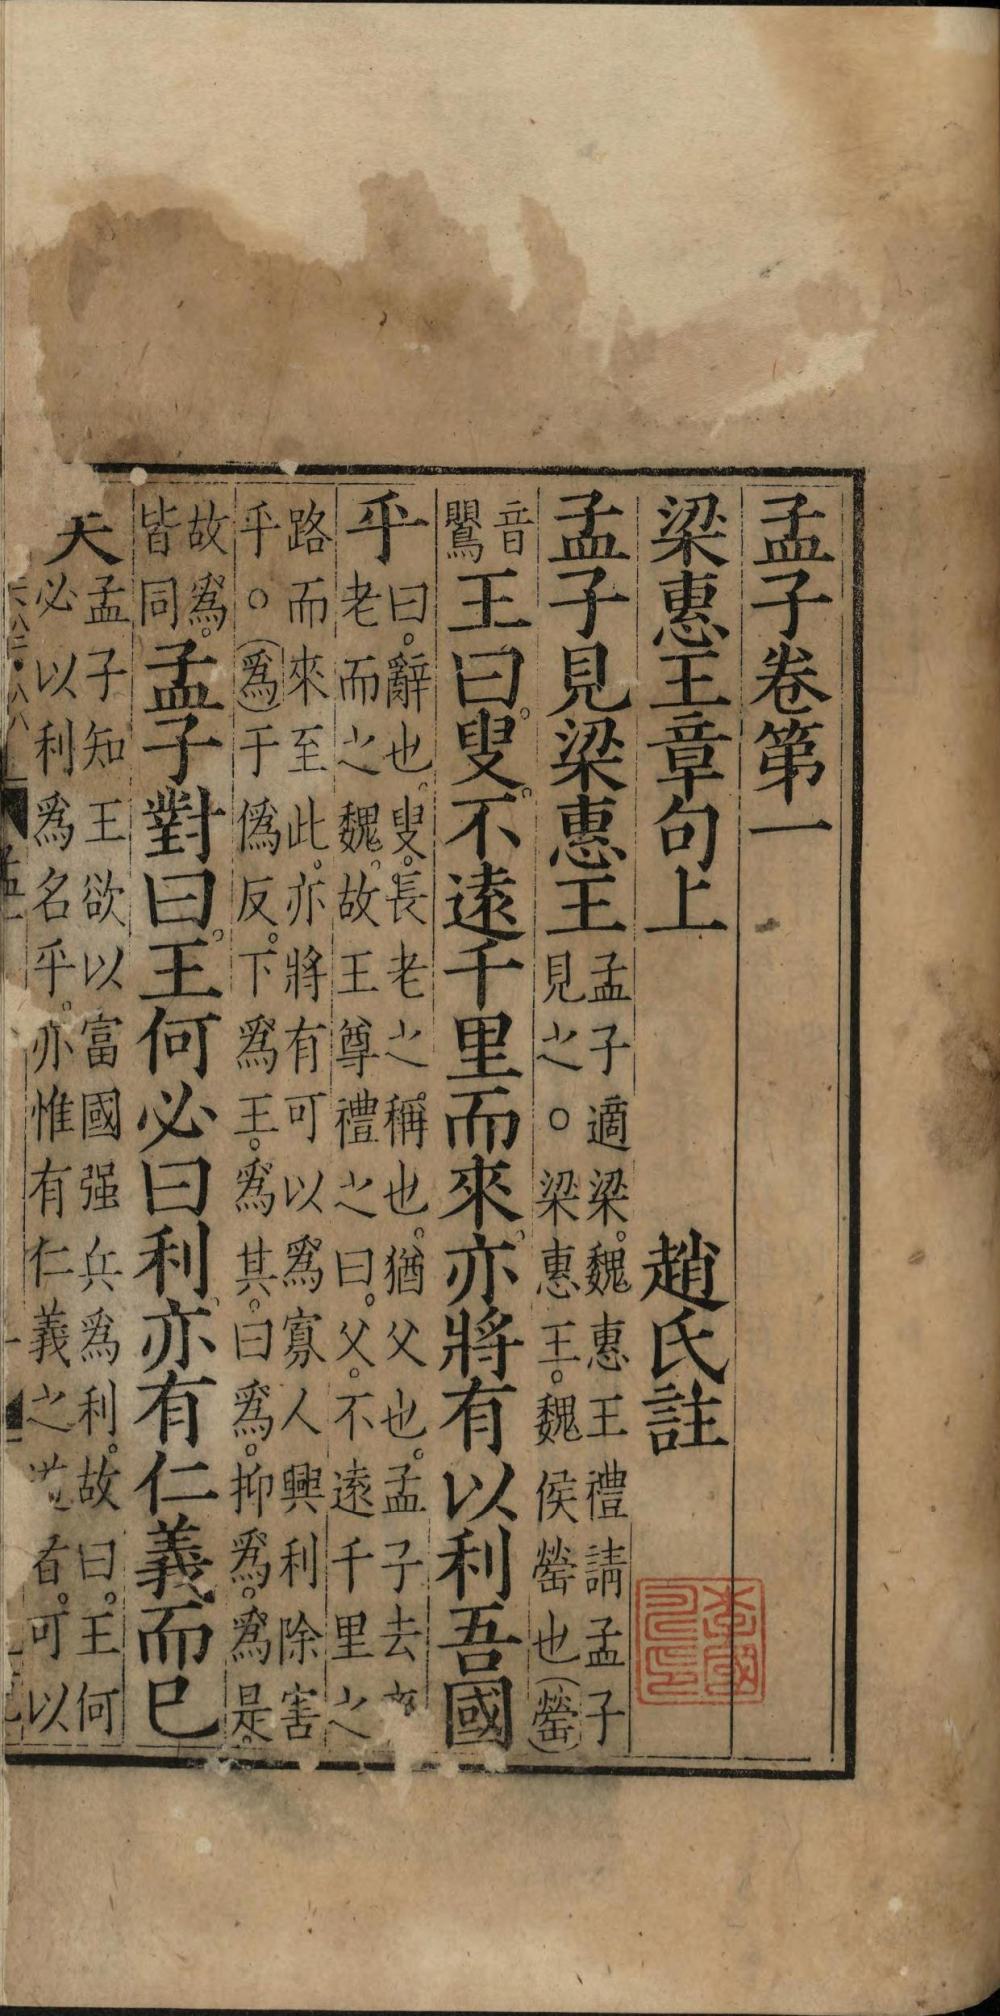 孟子卷第一
梁惠王章句上 趙氏註
孟子見梁惠王孟子適梁。魏惠王禮請孟子見之○梁惠王。魏侯罃也(罃)
音鸎王曰。叟。不遠千里而來。亦將有以利吾國
乎曰。辭也。叟。長老之稱也。猶父也。孟子去老而之魏。故王尊禮之曰。父。不遠千里之
路而來至此。亦將有可以爲寡人興利除害乎○(爲)于僞反。下爲王。爲其。曰爲。抑爲。爲是。
故爲。皆同孟子對曰。王何必曰利。亦有仁義而已
矣孟子知王欲以富國强兵爲利。故曰。王何必以利爲名乎。亦惟有仁義之道者。可以